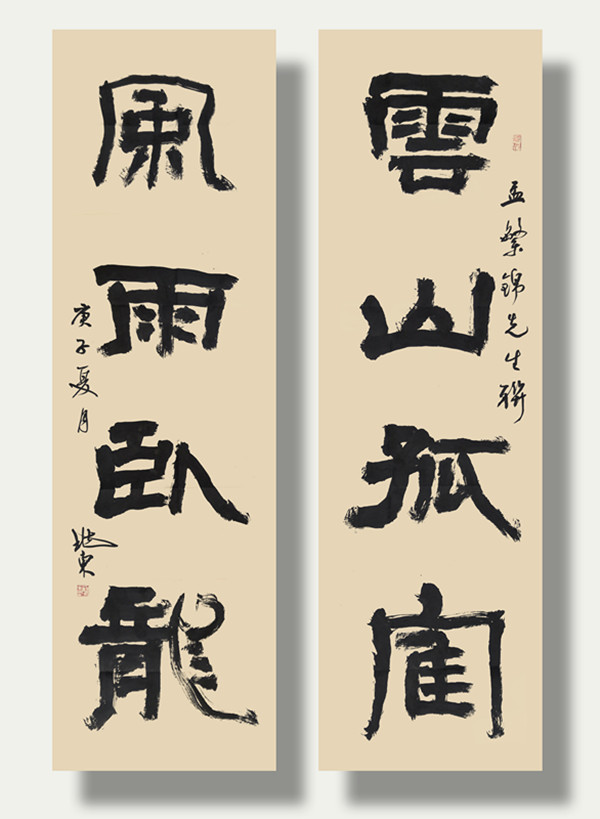 孟繁錦先生聯
雲山孤寉
風雨臥龍
庚子夏月
東